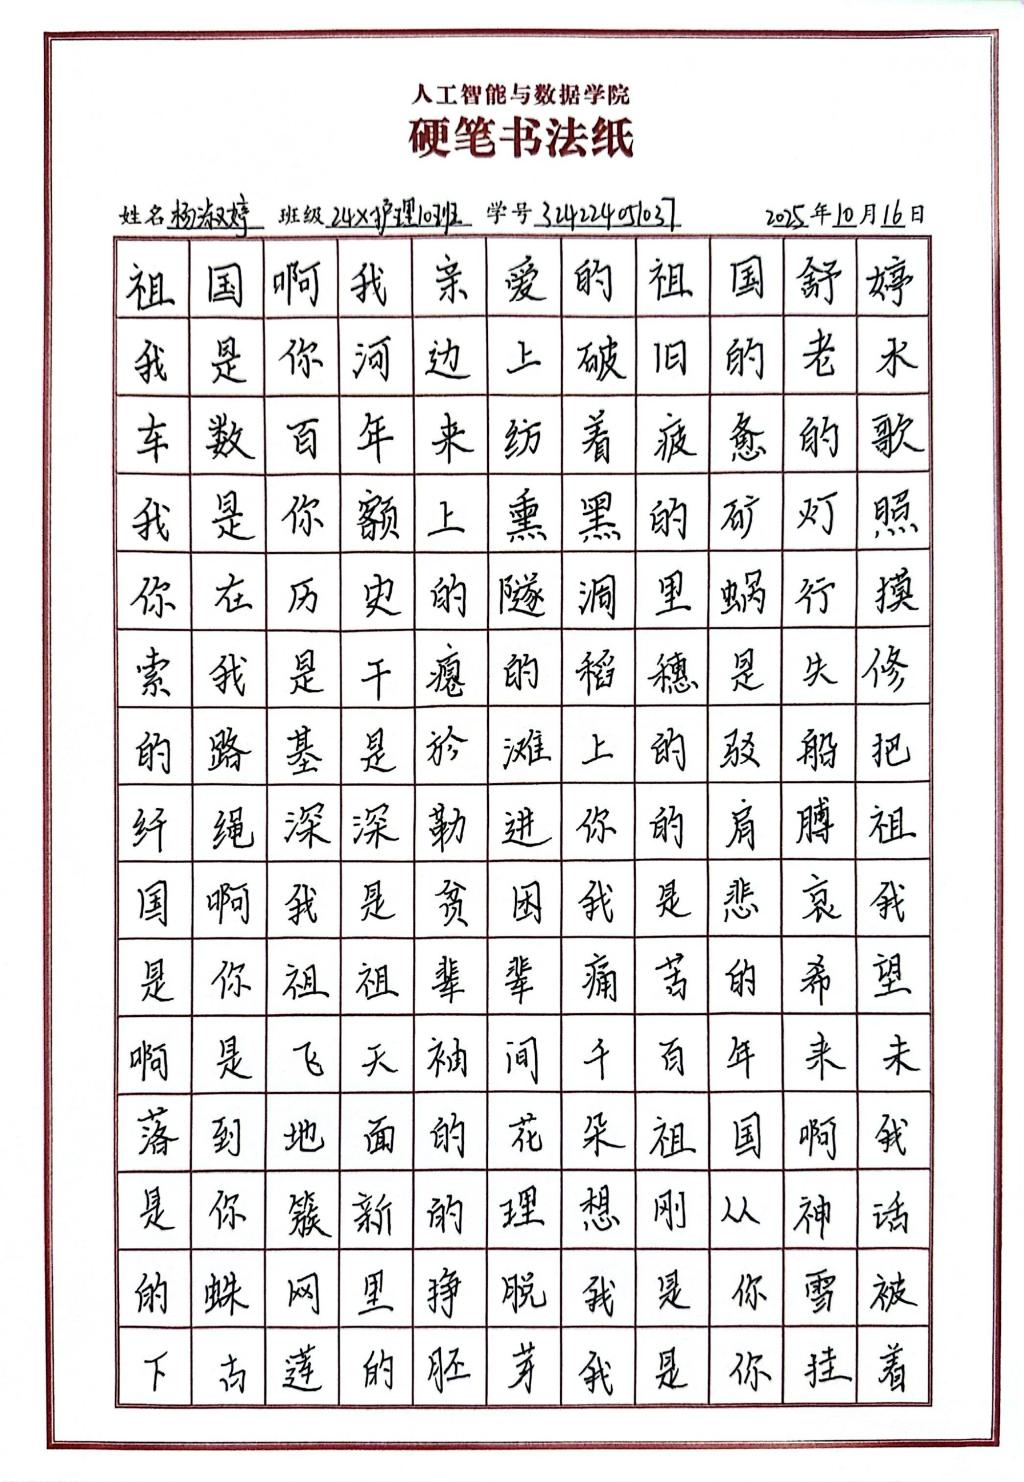 人工智能与数据学院
硬笔书法纸
姓名 杨淑婷 班级 24X护理10班 学号 324224051037 2025年10月16日
祖国啊我亲爱的祖国舒婷
我是你河边上破旧的老水
车数百年来纺着疲惫的歌
我是你额上熏黑的矿灯照
你在历史的隧洞里蜗行摸
索我是干瘪的稻穗是失修
的路基是於滩上的驳船把
纤绳深深勒进你的肩膊祖
国啊我是贫困我是悲哀我
是你祖祖辈辈痛苦的希望
啊是飞天袖间千百年来未
落到地面的花朵祖国啊我
是你簇新的理想刚从神话
的蛛网里挣脱我是你雪被
下古莲的胚芽我是你挂着